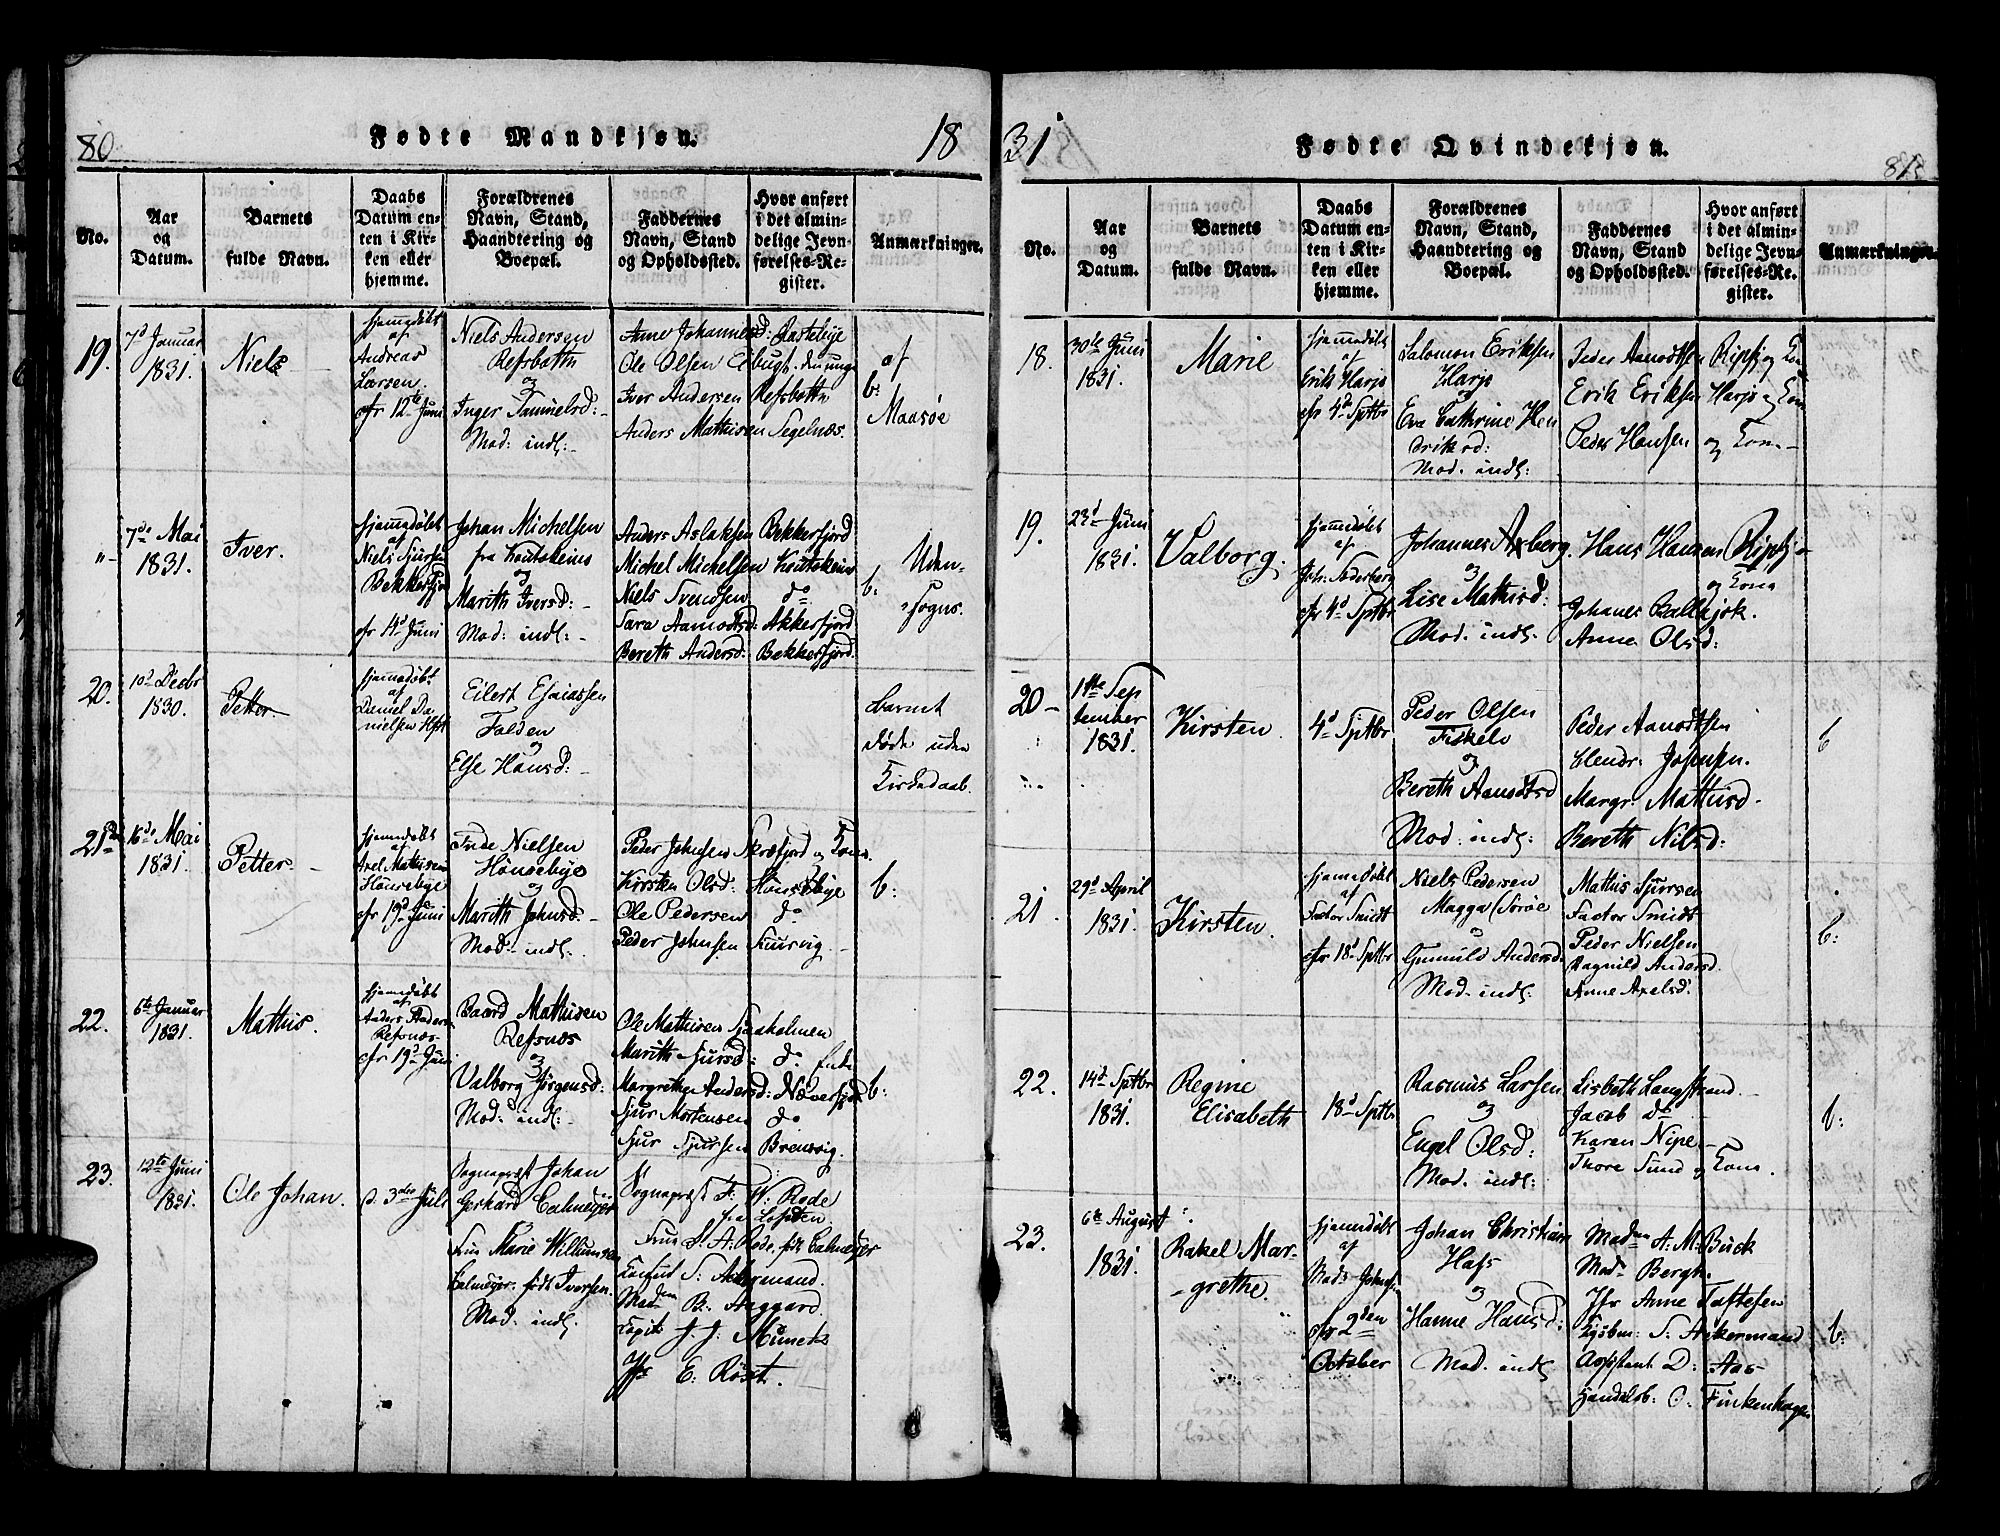 80.
Fødte Mandkjøn.
18
No.
Aar
og
Datum.
Barnets
fulde Navn.
Daabs
Datum en-
ten i Kir-
ken eller
hjemme.
Forældrenes
Navn, Stand,
Haandtering og
Boepæl.
Faddernes
Navn, Stand
og Opholdssted.
Hvor anført
i det almin-
delige Jevn-
førelses-Re-
gister.
Anmærkninger.
19.
7d Januar
1831.
Niels
hjemmedøbt
af
Andreas
Larsen.
cfr 12te Juni
Niels Andersen
Refsbotn
og
Inger Samuelsd:
Mod: indl:
Anne Johannesd:
Ole Olsen Eibugt.
Iver Andersen Refsbotn
Anders Mathisen Segelnæs.
b:
af
Maasøe
"
7de Mai
1831.
Iver.
hjemmedøbt
af
Niels Sjursen
Bekkerfjord
cfr 14d Juni
Johan Michelsen
fra Koutokeino
og
Marith Iversd:
Mod: indl:
Anders Aslaksen Bekkerfjord
Michel Michelsen Koutokeino
Niels Svendsen do
Sara Aamodtsd: Akkerfjord
Bereth Andersd: Bekkerfjord.
b:
Uden-
sogns.
20.
10d Decbr
1830.
Petter
hjemmedøbt
af
Daniel Da
nielsen Hfst
Eilert Esaiassen
Falden
og
Else Hansd:
Barnet
døde uden
Kirkedaab.
21
16de Mai
1831.
Petter
hjemmedøbt
af
Axel Mathisen
Hönsebye
cfr 19d Juni
Frde Nielsen
Hönsebye
og
Marith Johnsd:
Mod: indl:
Peder Johnsen Skræfjord og Kone.
Kirsten Olsd: Hönsebye
Ole Pedersen do
Peder Johnsen Kurvig.
b:
22.
6te Januar
1831.
Mathis.
hjemmedøbt
af
Anders Anders
Refsnæs
cfr 19d Juni
Baard Mathisen
Refsnæs
og
Valborg Jörgensd:
Mod: indl:
Ole Mathisen Sjaaholmen
Marith Sjursd: do
Margrethe Andersd: Næverfjord
Sjur Mortensen do
Sjur Sjursen Brensvig.
b:
23.
12te Juni
1831.
Ole Johan.
d. 3die Juli
Sognepræst Johan
Gerhard Calmeyer
Fru Marie Willumsen
Calmeyer. født Iversen.
Mod: indl:
Sognepræst F: W: Rode
fra Loppen
Frue S: A: Rode, født Calmeyer
S: Akermand.
Madm B: Aagaard.
Capit: J: J: Munck
Jfr E: Röst.
31
Fødte Qvindekjøn.
81.
No.
Aar
og
Datum.
Barnets
fulde Navn.
Daabs
Datum en-
ten i Kir-
ken eller
hjemme.
Forældrenes
Navn, Stand,
Haandtering og
Boepæl.
Faddernes
Navn, Stand
og Opholdssted.
Hvor anført
i det almin-
delige Jevn-
førelses-Re-
gister.
Anmærkninger.
18.
30te Juni
1831.
Marie
hjemmedøbt
af
Erik Harjo
cfr 4d Sptbr
Salomon Eriksen
Harjo
og
Eva Cathrine Hen
driksd:
Mod. indl:
Peder Aamodtsen Ripfj og Kone
Erik Eriksen Harjo og Kone
Peder Hansen og Kone
19.
23d Juni
1831.
Valborg.
hjemmedøbt
af
Joh: Søderberg
cfr 4d Sptbr
Johannes Axberg.
og
Lise Mathisd:
Mod. indl:
Hans Hansen Ripfj
og Kone
Johanes Ballajok.
Anne Olsd:
20
1ste Sep
tember
1831.
Kirsten.
4d Sptbr
Peder Olsen
Fiskelv
og
Bereth Aamodtsd
Mod: indl:
Peder Aamodtsen
Hendr. Johnsen.
Margr. Mathisd.
Bereth Nilsd:
b
21.
29d April
1831.
Kirsten.
hjemmedøbt
af
Factor Smidt
cfr 18d Sptbr
Niels Pedersen
Magga Sørøe
og
Gunnild Andersd.
Mod. indl:
Mathis Sjursen
Factor Smidt
Peder Nielsen
Ragnild Andersd.
Anne Axelsd.
b:
22.
14d Sptbr
1831.
Regine
Elisabeth
18d Sptbr
Rasmus Larsen
og
Engel Olsd:
Mod. indl:
Lisbeth Langstrand
Jacob do
Karen Nipe
Thore Sund og Kone.
b:
23.
6te August
1831.
Rakel Mar-
grethe.
hjemmedøbt
af
Mads Johns:
cfr 2den
October
Johan Christian
Hafs
og
Hanne Hansd:
Mod. indl
Madme A: M: Buck
Mad: Bergh.
Jfr Anne Toftesen
Kjøbm: S. Akermand
Assistent D: Aas
Handelsb: O: Finkenhagen
b: